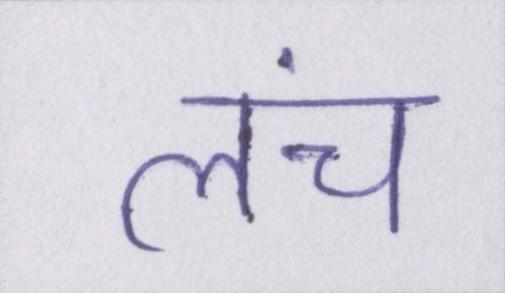 लंच